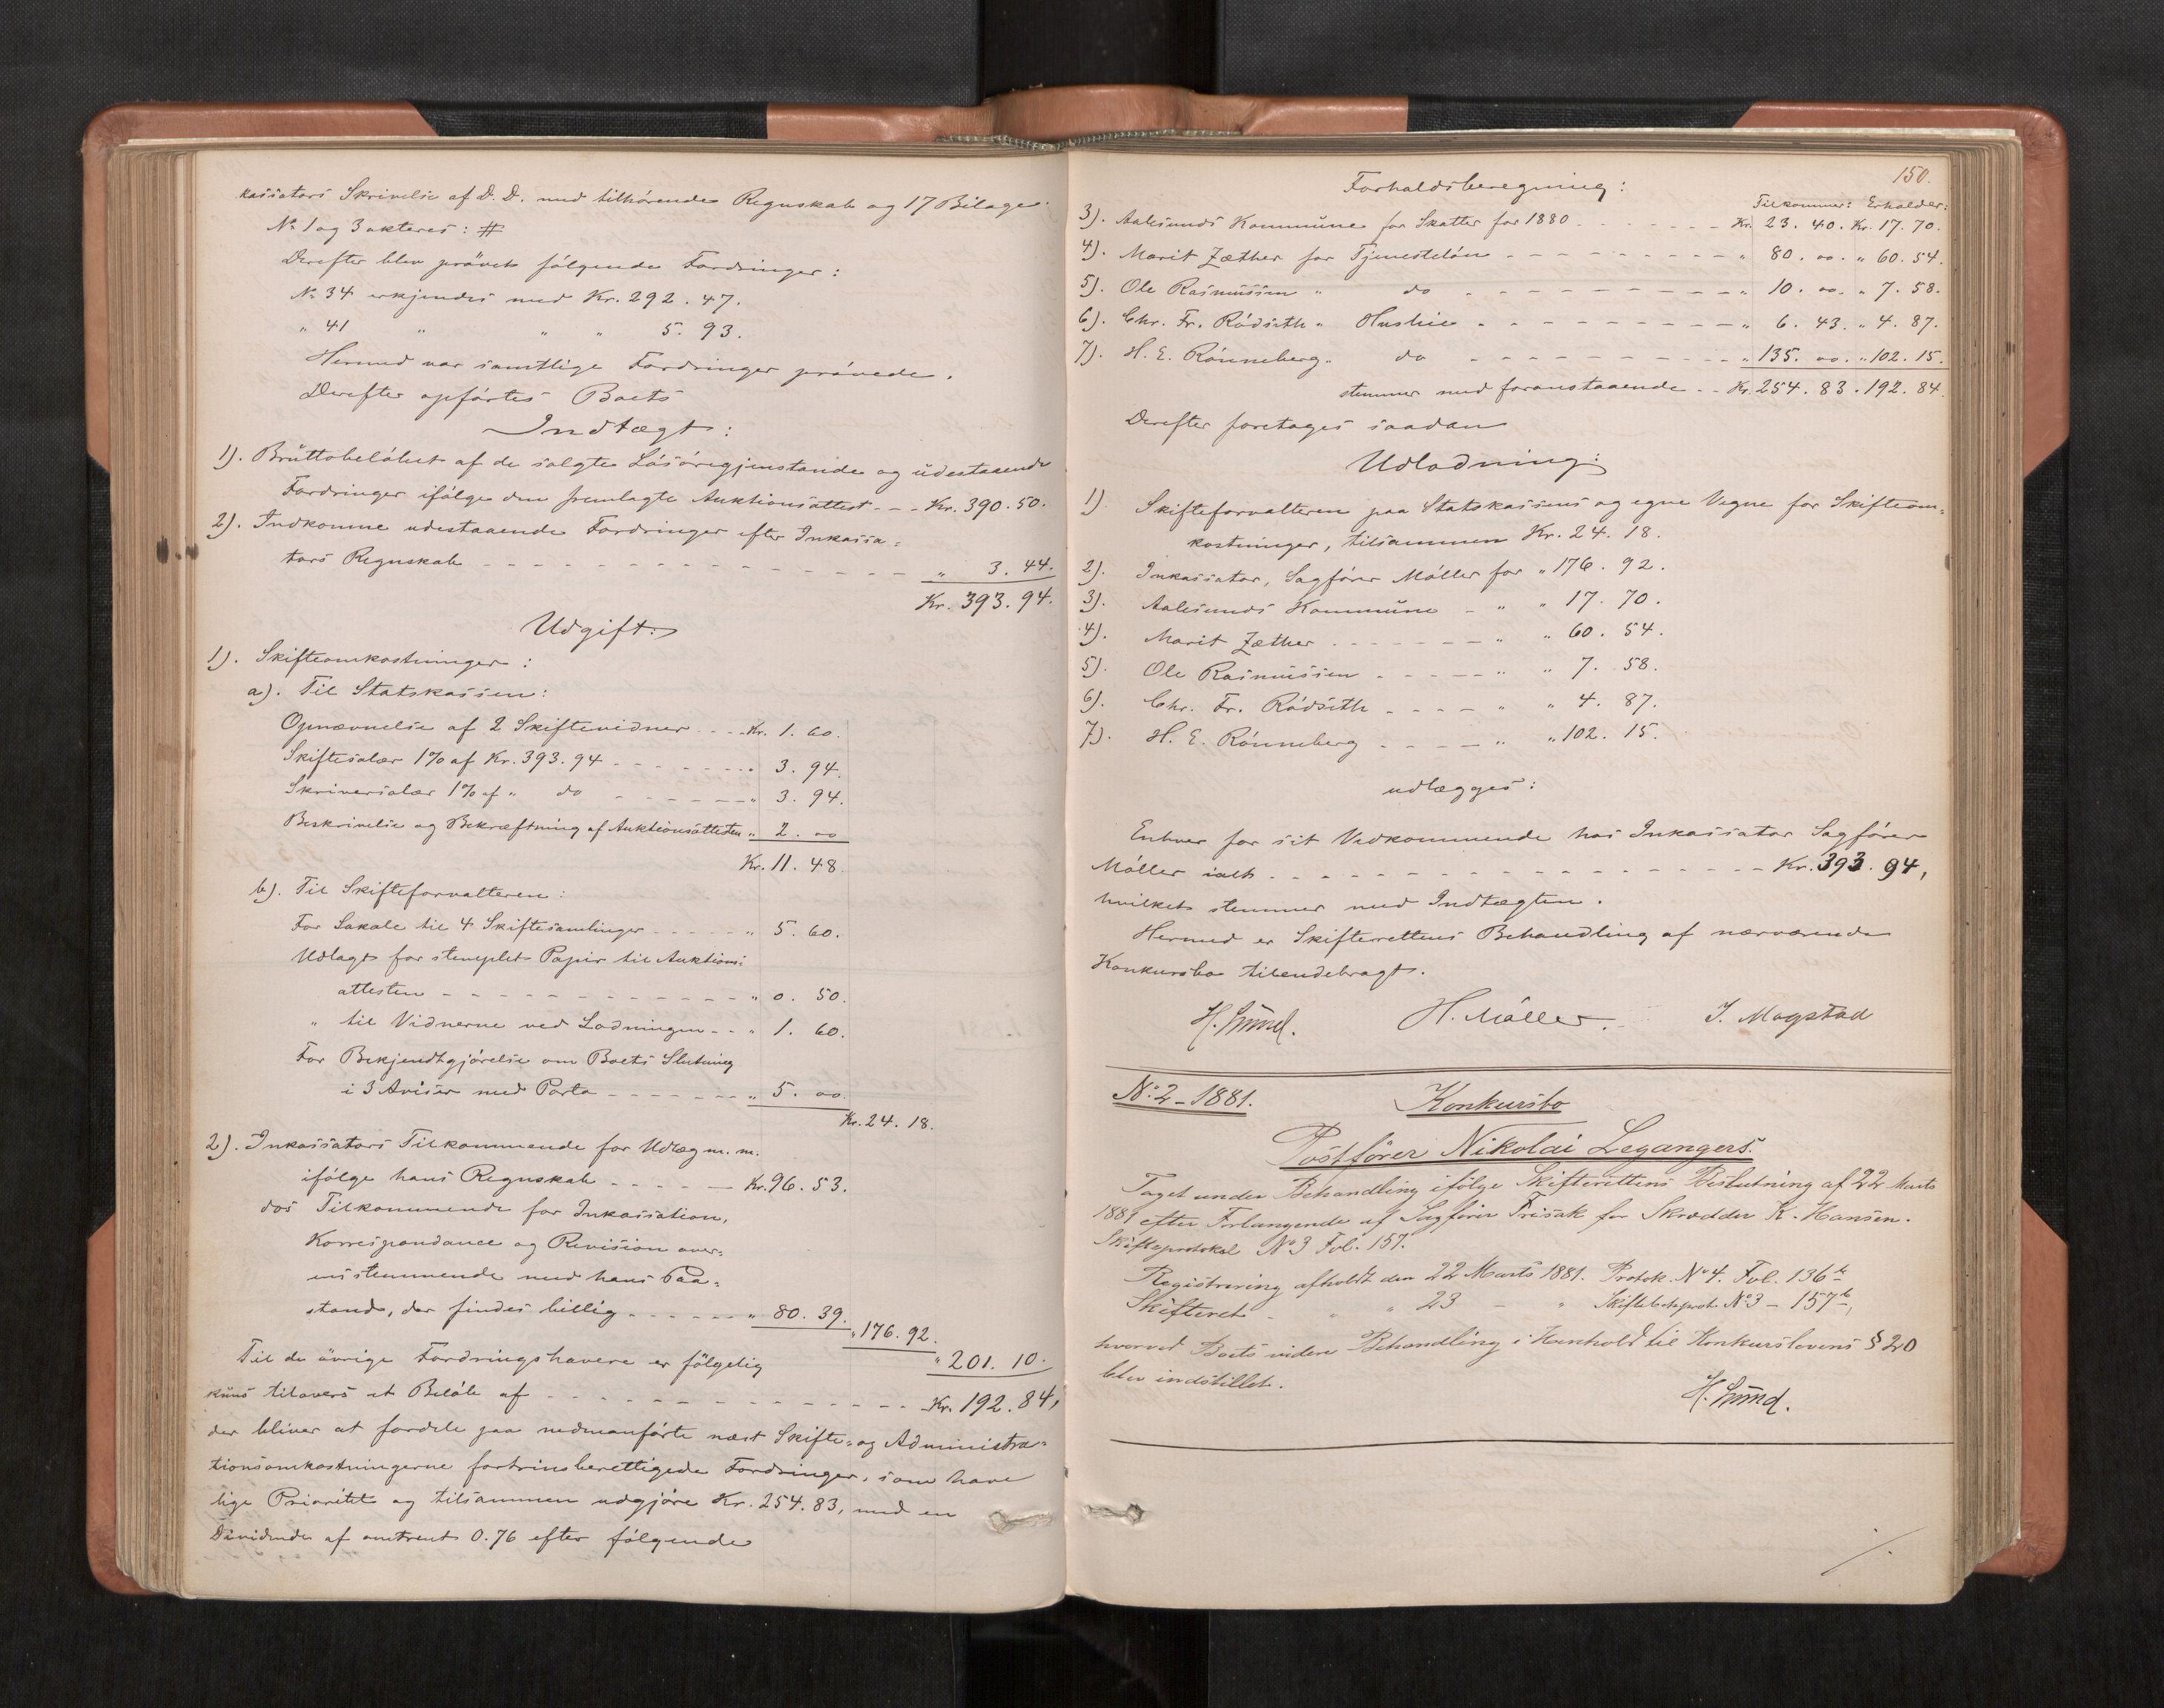 kassators Skrivelse af D. D. med tilhörende Regnskab og 17 Bilage.
No 1 og 3 akteres: #
Derefter blev prövet fölgende Fordringer:
No 34 erkjendes med Kr. 292. 47.
" 41 " " " 5. 93.
Hermed var samtlige Fordringer prövede.
Derefter opförtes Boets
Indtægt:
1). Bruttobelöbet af de solgte Lösöregjenstande og udestaaende
Fordringer ifölge den fremlagte Auktionsattest - - Kr. 390. 50.
2). Indkomne udestaaende Fordringer efter Inkassa=
tors Regnskab - - - - " 3. 44.
Kr. 393. 94.
Udgift:
1). Skifteomkostninger:
a). Til Statskassen:
Opnævnelse af 2 Skiftevidner - - - Kr. 1. 60.
Skiftesalær 1% af Kr. 393. 94 - - - - " 3. 94.
Skriversalær 1% af " do - - - - " 3. 94.
Beskrivelse og Bekræftning af Auktionsattesten " 2. 00
Kr. 11. 48
b). Til Skifteforvalteren:
For Lokale til 4 Skiftesamlinger - - - - " 5. 60.
Udlagt for stemplet Papir til Auktions=
attesten - - - - " 0. 50.
" til Vidnerne ved Lodningen - - " 1. 60.
For Bekjendtgjörelse om Boets Slutning
i 3 Aviser med Porto - - - - " 5. 00.
Kr. 24. 18.
2). Inkassators Tilkommende for Udlæg m. m.
ifölge hans Regnskab - - - - Kr. 96. 53.
dos Tilkommende for Inkassation,
Korrespondance og Revision over=
ensstemmende med hans Paa=
stand, der findes billig - - - - " 80. 39.
" 176. 92.
" 201. 10.
Til de övrige Fordringshavere er fölgelig
kuns tilovers et Belöb af - - - - Kr. 192. 84,
der bliver at fordele paa nedenanförte næst Skifte= og Administra=
tionsomkostningerne fortrinsberettigede Fordringer, som have
lige Prioritet og tilsammen udgjöre Kr. 254. 83, med en
Dividende af omtrent 0.76 efter fölgende
150.
Forholdsberegning:
Tilkommer: Erholder:
3). Aalesunds Kommune for Skatter for 1880 - - - - Kr. 23. 40. Kr. 17. 70.
4). Marit Zæther for Tjenestelön - - - - " 80. 00. " 60. 54.
5). Ole Rasmussen " do - - - - " 10. 00. " 7. 58.
6). Chr. Fr. Rödseth " Husleie - - - - " 6. 43. " 4. 87.
7). H. E. Rönneberg " do - - - - " 135. 00. " 102. 15.
stemmer med foranstaaende - - Kr. 254. 83. 192. 84.
Derefter foretages saadan
Udlodning:
1) Skifteforvalteren paa Statskassens og egne Vegne for Skifteom=
kostninger, tilsammen Kr. 24. 18.
2). Inkassator, Sagförer Möller for " 176. 92.
3). Aalesunds Kommune - " " 17. 70.
4). Marit Zæther - - - - " " 60. 54.
5). Ole Rasmussen - - - - " " 7. 58.
6). Chr. Fr. Rödseth - - - - " " 4. 87.
7). H. E. Rönneberg - - - - " " 102. 15.
udlægges:
Enhver for sit Vedkommende hos Inkassator Sagförer
Möller ialt - - - - Kr. 393. 94,
hvilket stemmer med Indtægten.
Hermed er Skifterettens Behandling af nærværende
Konkursbo tilendebragt.
H. Lund. H. Möller. J. Mogstad
No: 2 - 1881. Konkursbo
Postförer Nikolai Legangers.
Taget under Behandling ifölge Skifterettens Beslutning af 22 Marts
1881 efter Forlangende af Sagförer Frisak for Skrædder K. Hansen.
Skifteprotokol No 3 Fol. 157.
Registrering afholdt den 22 Marts 1881. Protok. No 4. Fol. 136b
Skifteret - " " 23 - " No 3 - 157b,
hvorved Boets videre Behandling i Henhold til Konkurslovens § 20
blev indstillet.
H. Lund.